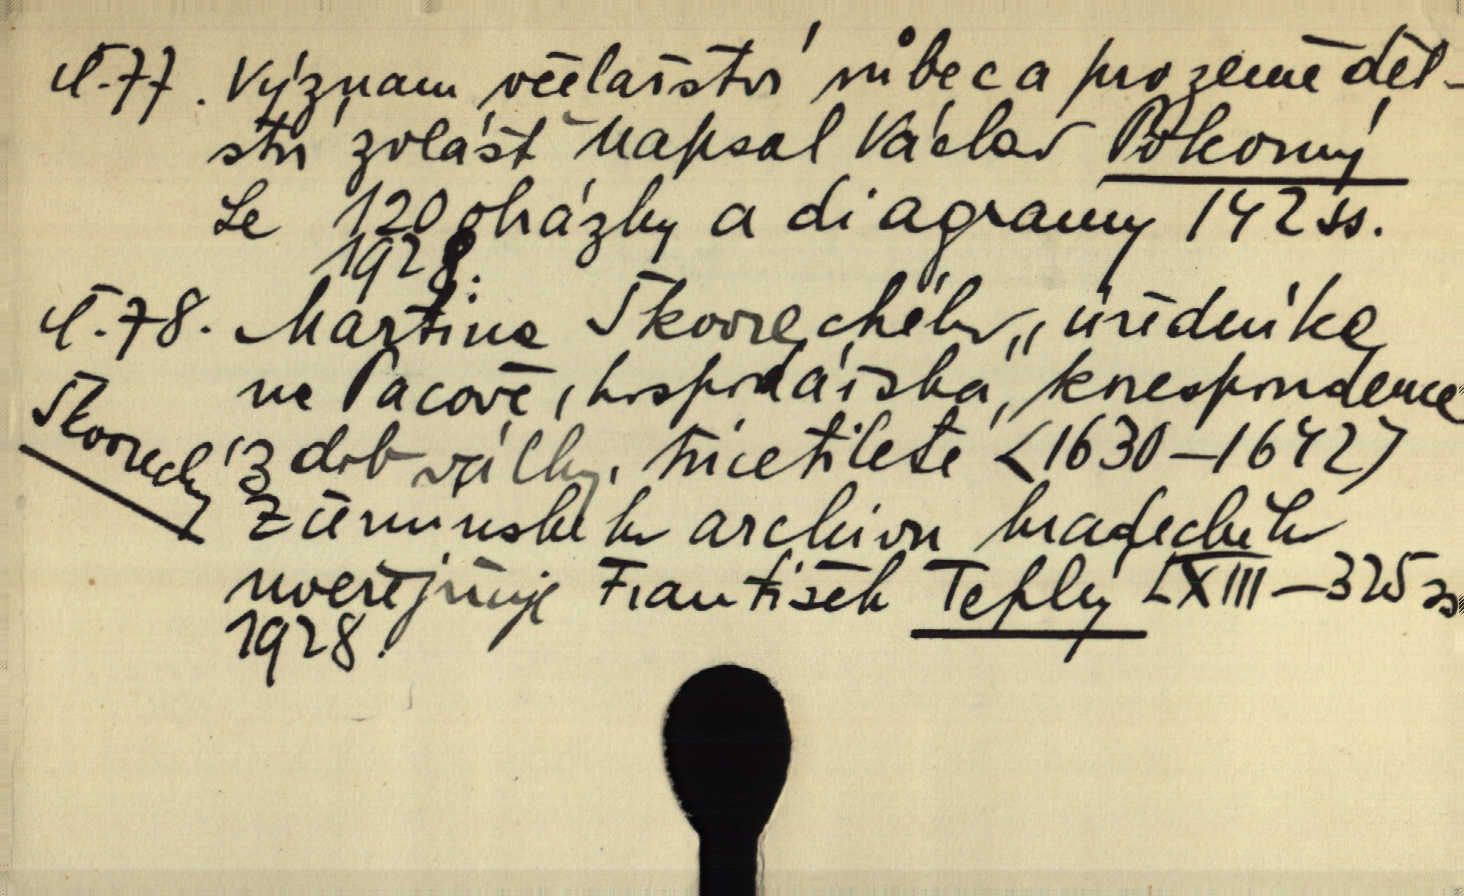 č. 77. Význam včelařství vůbec a pro zeměděl-
ství zvlášť napsal Václav Pokorný
Se 120 obrázky a diagramy 142 ss.
1928.
č. 78. Martina Škovreckého „úředníka
na Pacově, hospodářská, korespondence
Škovrecký z dob války, třicetileté (1630–1642)
Z černínského archivu hradeckého
uveřejňuje František Teplý LXIII – 325 ss
1928.